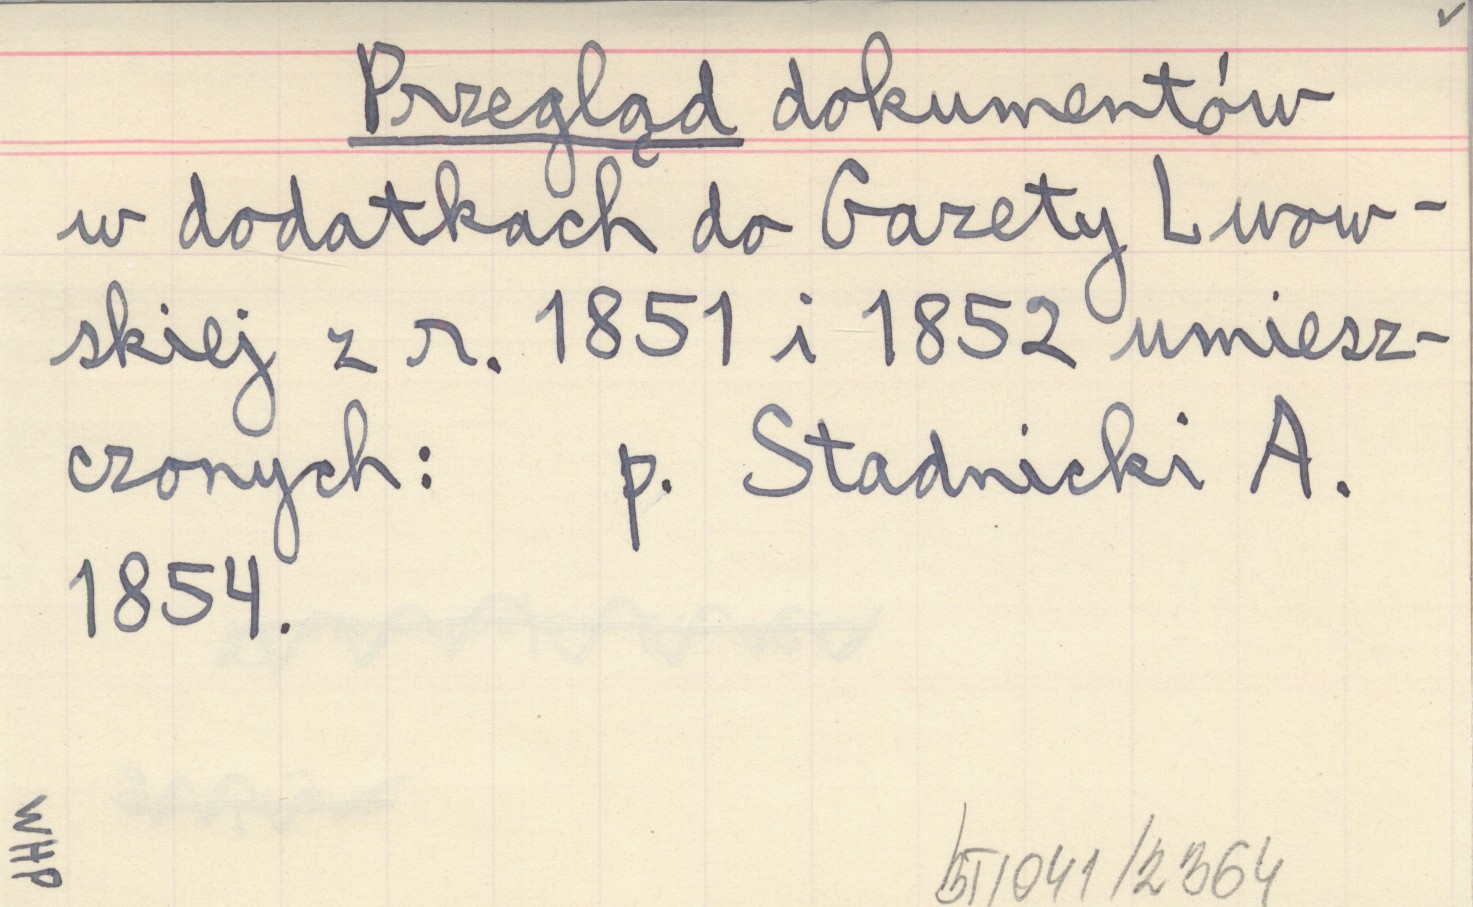 Przegląd dokumentów
w dodatkach do Gazety Lwow-
skiej z r. 1851 i 1852 umiesz-
czonych: p. Stadnicki A.
1854.
WHP
/041/2364